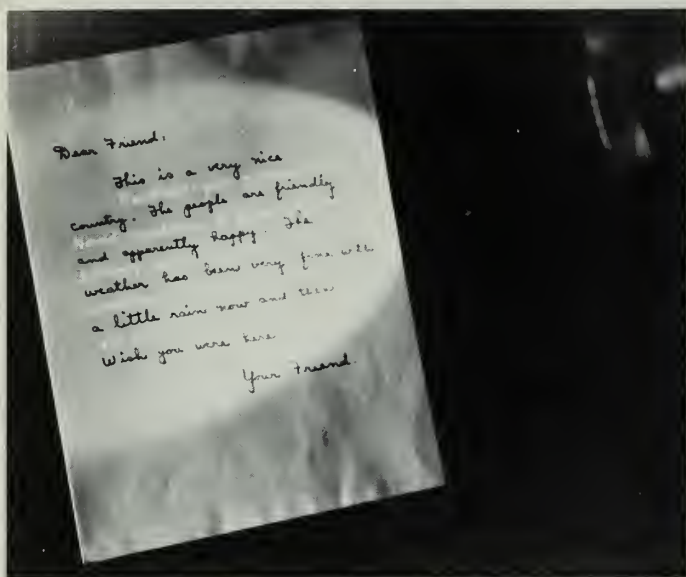 Dear Friend,
This is a very nice
country. The people are friendly
and apparently happy. The
weather has been very fine with
a little rain now and then
Wish you were here
Your Friend.